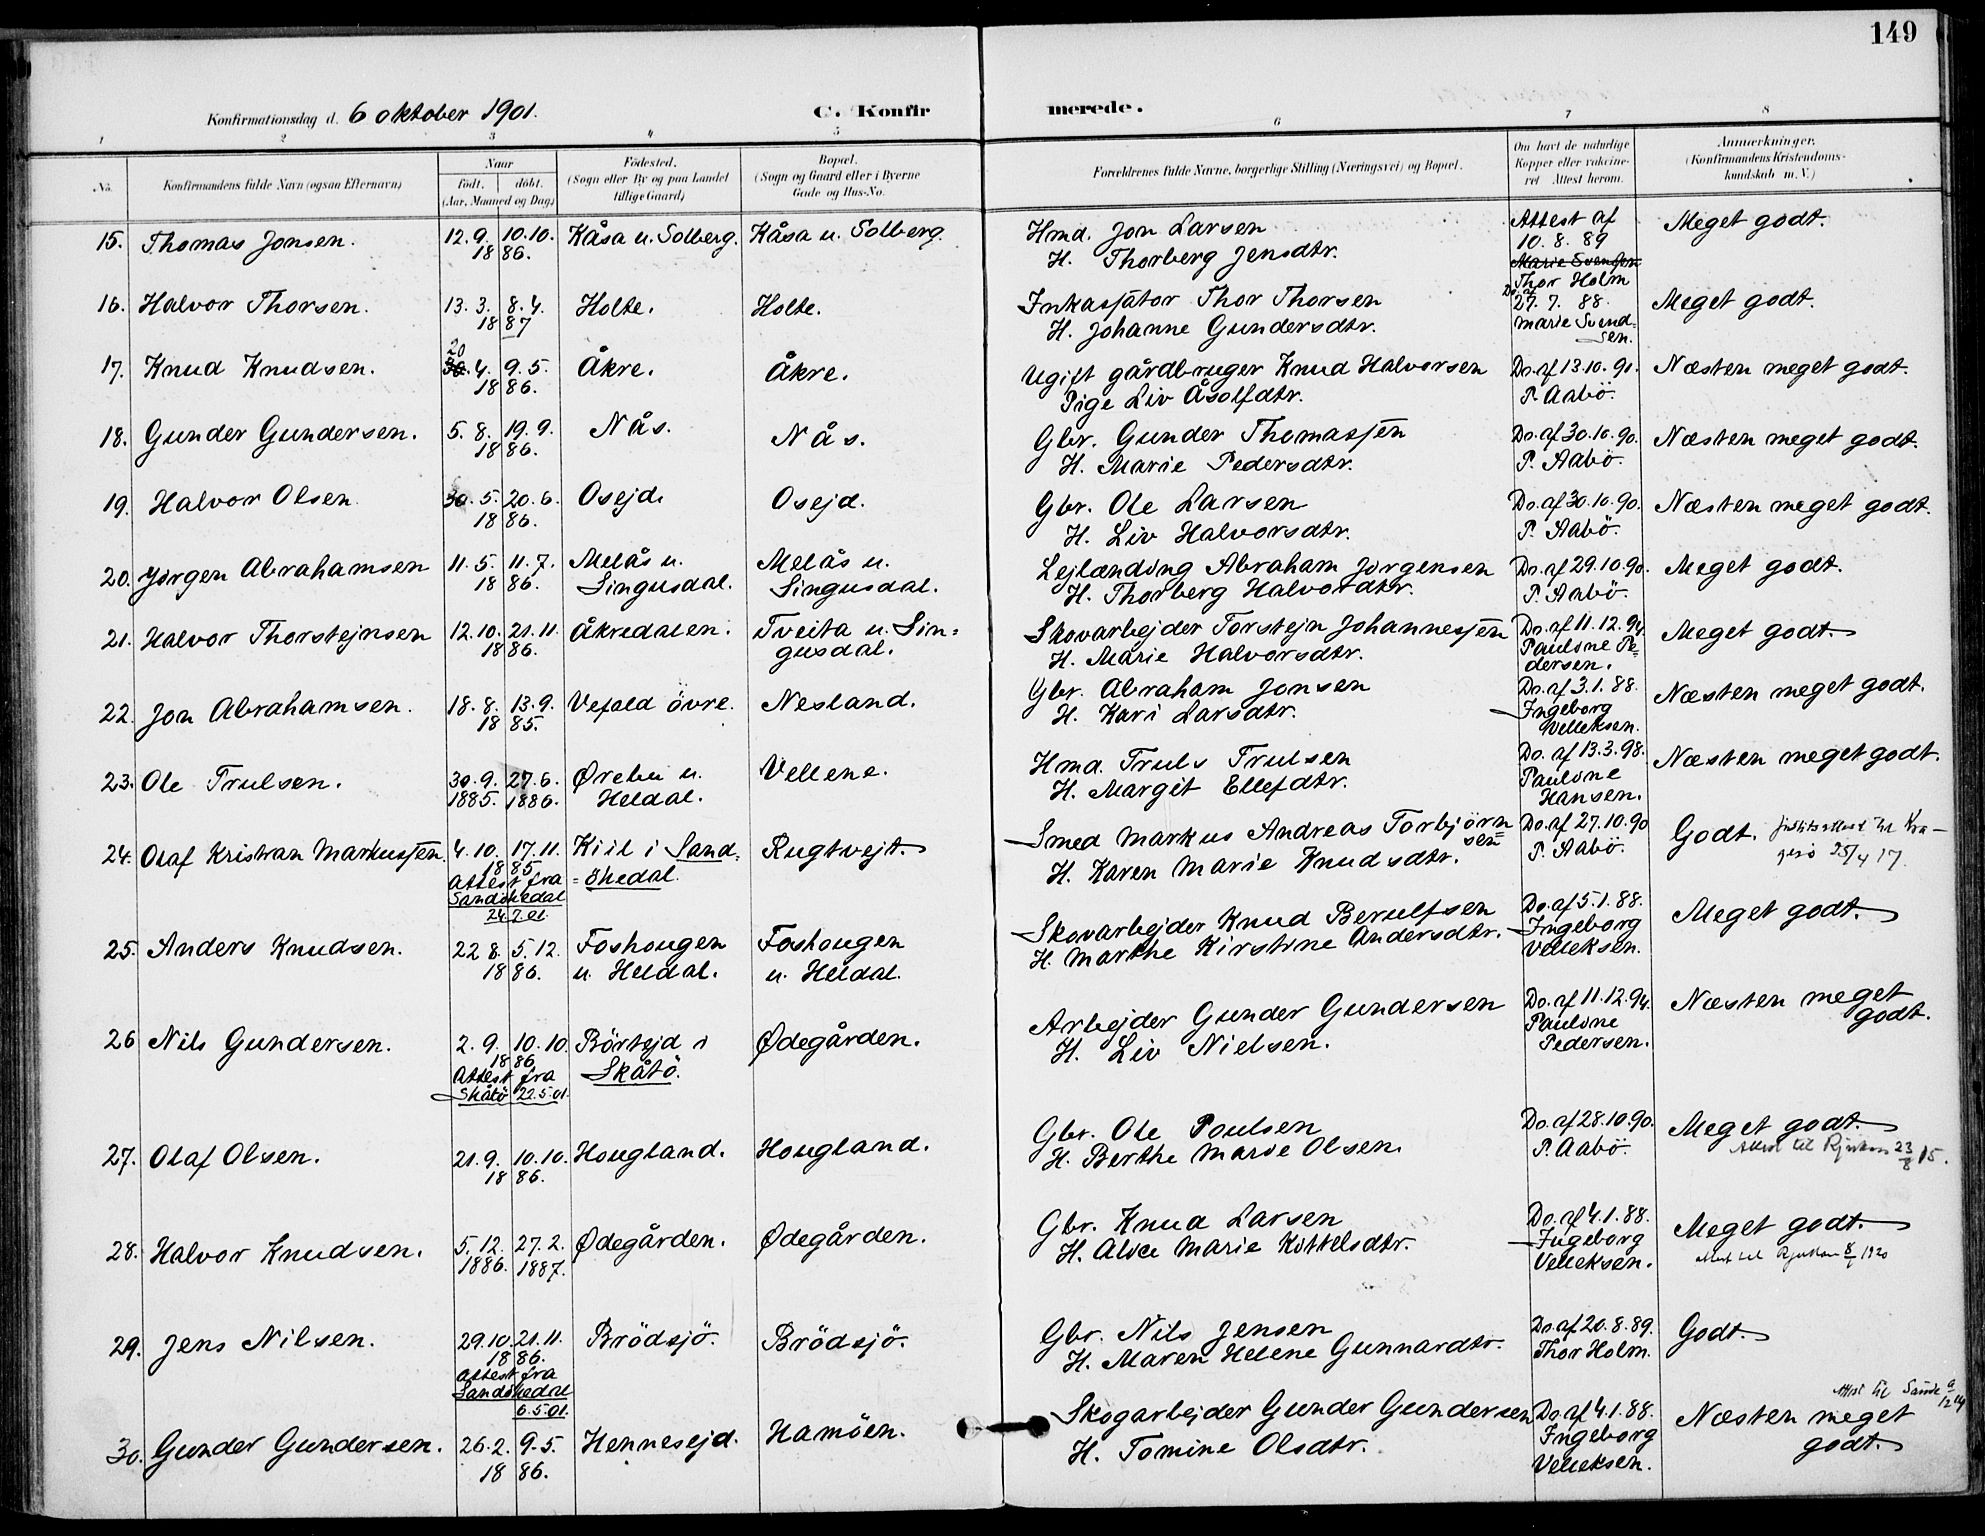 149
Konfirmationsdag d. 6 oktober 1901.
C. Konfirmerede.
1 2 3 4 5 6 7 8
No.
Konfirmandens fulde Navn (ogsaa Efternavn)
Naar
født. døbt.
(Aar, Maaned og Dag)
Fødested.
(Sogn eller By og paa Landet
tillige Gaard)
Bopæl.
(Sogn og Gaard eller i Byerne
Gade og Hus-No.
Forældrenes fulde Navne, borgerlige Stilling (Næringsvei) og Bopæl.
Om havt de naturlige
Kopper eller vakcine-
ret Attest herom.
Anmærkninger.
(Konfirmandens Kristendoms-
kundskab m. V.)
15. Thomas Jonsen. 12.9. 10.10. Kåsa u. Solberg. Kåsa u. Solberg. Hmd. Jon Larsen Attest af Meget godt.
1886. H. Thorberg Jensdtr. 10. 8. 89
Marie Svendsen
Thor Holm
16. Halvor Thorsen. 13. 3. 8. 4. Holte. Holte. Inkassator Thor Thorsen Do. af 27. 7. 88. Meget godt.
1887 H. Johanne Gundersdtr. Marie Svend-
sen.
17. Knud Knudsen. 20 30. 4. 9. 5. Åkre. Åkre. Ugift gårdbruger Knud Halvorsen Do. af 13.10.91. Næsten meget godt.
1886. Pige Liv Åsolfdtr. P. Aabö.
18. Gunder Gundersen. 5. 8. 19. 9. Nås. Nås. Gbr. Gunder Thomassen Do. af 30.10.90. Næsten meget godt.
1886. H. Marie Pedersdtr. P. Aabö.
19. Halvor Olsen 30. 5. 20. 6. Osejd. Osejd. Gbr. Ole Larsen Do. af 30.10.90. Næsten meget godt.
1886. H. Liv Halvorsdtr. P. Aabö.
20. Jørgen Abrahamsen 11. 5. 11. 7. Melås u. Melås u. Lejlænding Abraham Jørgensen Do. af 29.10.90. Meget godt.
1886. Lingusdal. Lingusdal. H. Thorberg Halvordtr. P. Aabö.
21. Halvor Thorstejnsen 12.10. 21.11. Åkredalen. Tveita u. Lin- Skovarbejder Torstejn Johannessen Do. af 11.12.94. Meget godt.
1886. gusdal. H. Marie Halvorsdtr. Pauline Pe-
dersen.
22. Jon Abrahamsen. 18. 8. 13. 9. Vefald övre. Nesland. Gbr. Abraham Jonsen Do. af 3.1.88. Næsten meget godt.
1885. H. Kari Larsdtr. Ingeborg
Velleksen.
23. Ole Trulsen. 30. 9. 27. 6. Ørebu u. Vellene. Hmd. Truls Trulsen Do. af 13.3.98. Næsten meget godt.
1885. 1886. Heldal. H. Margit Ellefdtr. Pauline
Hansen.
24. Olaf Kristian Markussen 4.10. 17.11. Kiil i Sand- Rugtvejt. Smed Markus Andreas Torbjørn- Do. af 27.10.90 Godt. til Kra-
1885 =ökedal. sen P. Aabö. gerö 25/4 17.
Attest fra H. Karen Marie Knudsdtr.
Sandökedal
24.7.01.
25. Anders Knudsen. 22 8. 5. 12. Foshougen Foshougen Skovarbejder Knud Berulfsen Do. af 5.1.88. Meget godt.
1886. u. Heldal. u. Heldal. H. Marthe Kirstine Andersdtr. Ingeborg
Velleksen.
26 Nils Gundersen. 2. 9. 10.10. Börtejd i Ødegården. Arbejder Gunder Gundersen Do. af 11.12.94. Næsten meget
1886 Skåtö. H. Liv Nielsen. Pauline godt.
Attest fra Pedersen.
Skåtö 22.5.01.
27. Olaf Olsen. 21.9. 10.10. Hougland. Hougland. Gbr. Ole Poulsen Do. af 28.10.90. Meget godt.
1886. H. Berthe Marie Olsen. P. Aabö. Attest til Rjukan 23/8 15.
28. Halvor Knudsen. 5.12. 27.2. Ødegården. Ødegården. Gbr. Knud Larsen Do. af 4.1.88. Meget godt.
1886. 1887. H. Alice Marie Kittelsdtr. Ingeborg Attest til Rjukan 8/1 1920
Velleksen.
29. Jens Nilsen. 29.10. 21.11. Brödsjö. Brödsjö. Gbr. Nils Jensen Do. af 20.8.89. Godt.
1886. H. Maren Helene Gunnardtr. Thor Holm.
Attest fra
Sandökedal
6.5.01.
Attest til
30. Gunder Gundersen. 26.2. 9.5. Hennesejd. Hamöen. Skogarbejder Gunder Gundersen Do. af 4.1.88. Næsten meget
1886. H. Tomine Olsdtr. Ingeborg godt.
Velleksen.